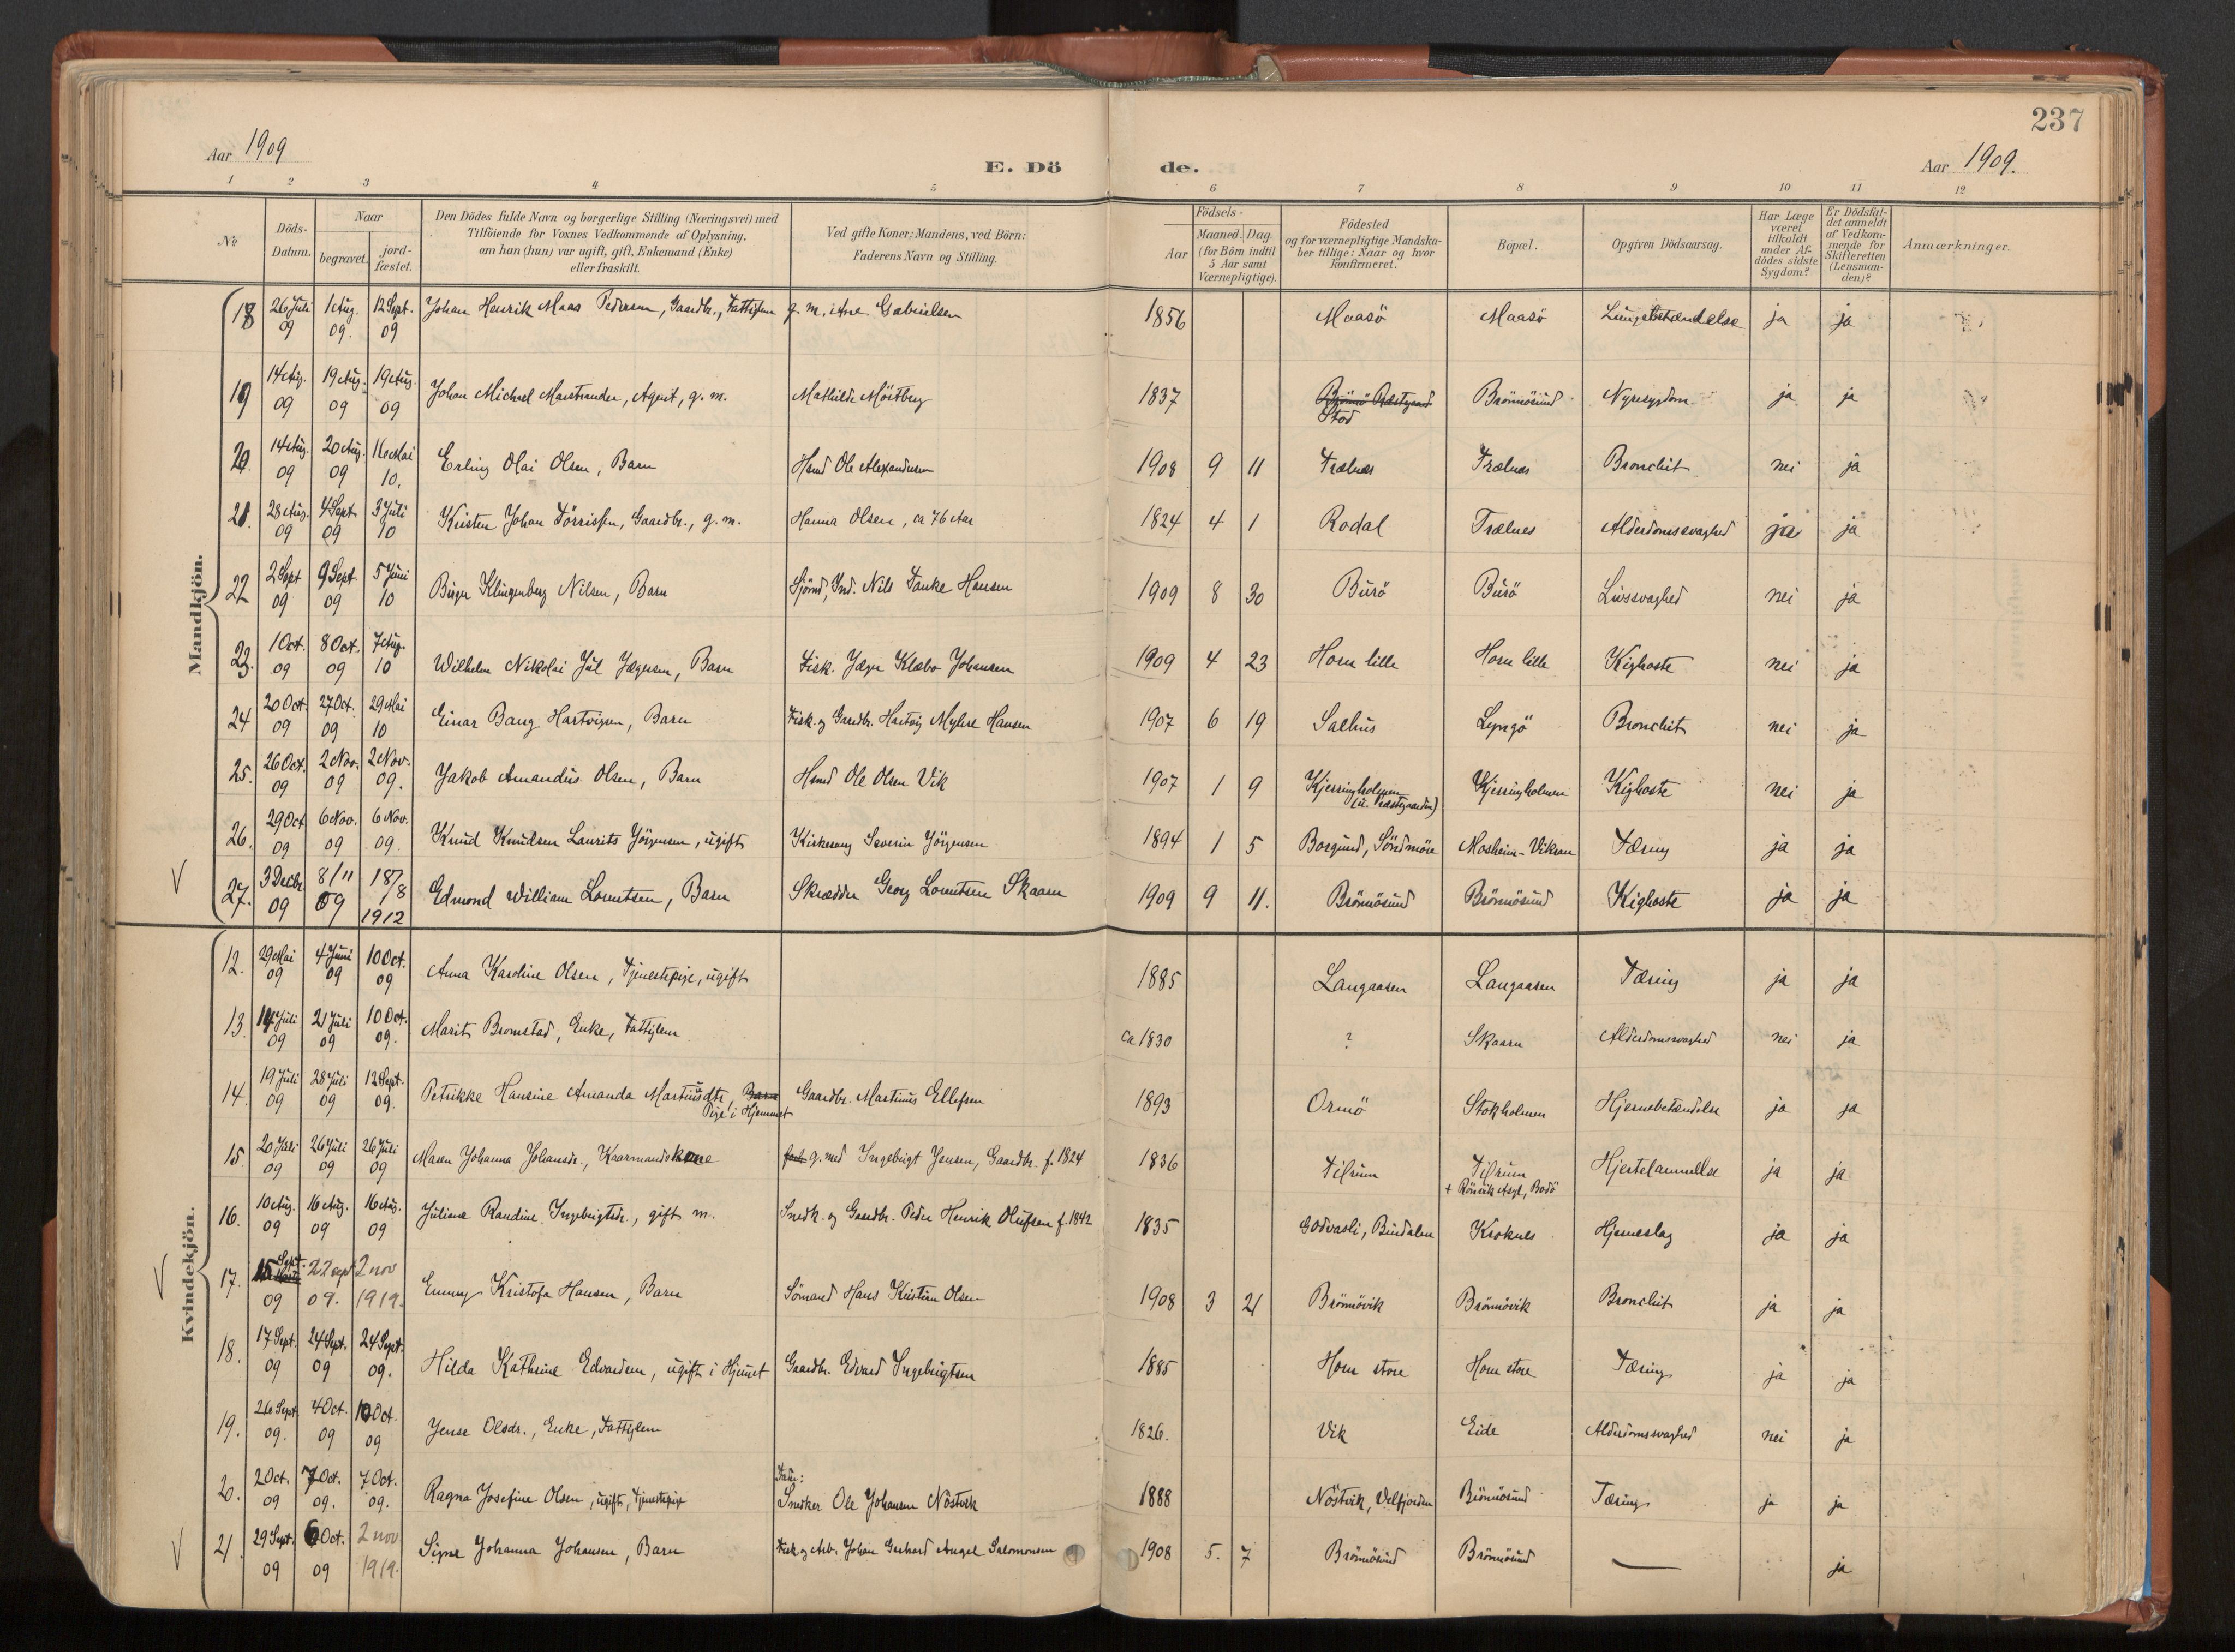 237
Aar 1909
E. Dö
de.
Aar 1909.
1 2 3 4 5 6 7 8 9 10 11 12
№
Döds-
Datum.
Naar
begravet.
jord-
fæstet.
Den Dödes fulde Navn og borgerlige Stilling (Næringsvei) med
Tilföiende for Voxnes Vedkommende af Oplysning,
om han (hun) var ugift, gift, Enkemand (Enke)
eller fraskilt.
Ved gifte Koner: Mandens, ved Börn:
Faderens Navn og Stilling.
Födsels-
Aar
Maaned. Dag.
(for Börn indtil
5 Aar samt
Værnepligtige).
Födested
og for værnepligtige Mandska-
ber tillige: Naar og hvor
konfirmeret.
Bopæl.
Opgiven Dödsaarsag.
Har Læge
været
tilkaldt
under Af-
dödes sidste
Sygdom?
Er Dödsfal-
det anmeldt
af Vedkom-
mende for
Skifteretten
(Lensman-
den)?
Anmærkninger.
Mandkjön.
18 26 Juli 09 1 Aug. 09. 12 Sept. 09 Johan Henrik Maas Pedersen, Gaardbr., Fattiglem g. m. Ane Gabrielsen 1856 Maasö Maasö Lungebetændelse ja ja
19 14 Aug. 09 19 Aug. 09 19 Aug. 09 Johan Michael Marstrander, Agent, g. m. Mathilde Möstberg 1837 Brönnö Præstgaard Brönnösund Nyresygdom ja ja
Stod
20. 14 Aug. 09 20 Aug. 09 16 Mai 10. Erling Olai Olsen, Barn Hsmd Ole Alexandersen 1908 9 11 Trælnes Trælnes Bronchit nei ja
21. 28 Aug. 09 4 Sept. 09 3 Juli 10 Kristen Johan Törrissen, Gaardbr., g. m. Hanna Olsen, ca 76 Aar 1824 4 1 Rodal Trælnes Alderdomssvaghed ja ja
22 2 Sept 09 9 Sept. 09 5 Juni 10 Birger Klingenberg Nilsen, Barn Sjömd, Ind. Nils Tanke Hansen 1909 8 30 Burö Burö Livssvaghed nei ja
23. 1 Oct. 09 8 Oct. 09 7 Aug. 10 Wilhelm Nikolai Jul Jægersen, Barn Fisk. Jæger Klæbo Johansen 1909 4 23 Horn lille Horn lille Kighoste nei ja
24 20 Oct. 09 27 Oct. 09 29 Mai 10 Einar Bang Hartvigsen, Barn Fisk. og Gaardbr. Hartvig Myhre Hansen 1907 6 19 Salhus Lyngö Bronchit nei ja
25. 26 Oct. 09 2 Nov. 09 2 Nov. 09. Jakob Amandus Olsen, Barn Hsmd Ole Olsen Vik 1907 1 9 Kjerringholmen Kjerringholmen Kighoste nei ja
(u. Præstegaarden)
26. 29 Oct 09 6 Nov. 09 6 Nov. 09. Knud Knudsen Laurits Jörgensen, ugift Kirkesang. Severin Jörgensen 1894 1 5 Borgund, Söndmöre Mosheim-Vikran Tæring ja ja
27. 3 Decbr 09 8/11 09 18/8 1912 Edmond William Lorentsen, Barn Skrædder Georg Lorentsen Skaarn 1909 9 11. Brönnösund Brönnösund Kighoste ja ja
Kvindekjön.
12. 29 Mai 09 4 Juni 09 10 Oct. 09 Anna Karoline Olsen, Tjenestepige, ugift 1885 Langaasen Langaasen Tæring ja ja
13 14 Juli 09 21 Juli 09 10 Oct. 09. Marit Bromstad, Enke, Fattiglem ca 1830 ? Skaarn Alderdomssvaghed nei ja
14. 19 Juli 09 28 Juli 09 12 Sept. 09. Petrikke Hansine Amanda Martinusdtr, Barn Gaardbr. Martinus Ellefsen 1893 Ormö Stokholmen Hjernebetændelse ja ja
Pige i Hjemmet
15. 20 Juli 09 26 Juli 09 26 Juli 09 Maren Johanna Johansdr., Kaarmandskone g. med Ingebrigt Jensen, Gaardbr. f. 1824 1836 Tilrum Tilrum Hjertelammelse ja ja
+ Rönvik Asyl, Bodö
16. 10 Aug. 09 16 Aug. 09 16 Aug. 09 Juliane Randine Ingebrigtsdr., gift m. Snedk. og Gaardbr. Peder Henrik Olufsen f. 1842 1835 Godvasli, Bindalen Kroknes Hjerneslag ja ja
17. 15 Sept. 09 22 sept 09. 2 nov 1919. Emmy Kristofa Hansen, Barn Sömand Hans Kristian Olsen 1908 3 21 Brönnövik Brönnövik Bronchit ja ja
18. 17 Sept. 09 24 Sept. 09 24 Sept. 09. Hilda Kathrine Edvardsen, ugift i Hjemmet Gaardbr. Edvard Ingebrigtsen 1885 Horn store Horn store Tæring ja ja
19. 26 Sept 09. 4 Oct. 09 10 Oct. 09 Jense Olsdr., Enke, Fattiglem 1826. Vik Eide Alderdomssvaghed nei ja
Fau:
20. 2 Oct. 09 7 Oct. 09. 7 Oct. 09. Ragna Josefine Olsen, ugift, Tjenestepige Snedker Ole Johansen Nöstvik 1888 Nöstvik, Velfjorden Brönnösund Tæring ja ja
21. 29 Sept. 09 6 Oct. 09 2 nov 1919. Signe Johanna Johansen, Barn Fisk. og Arb. Johan Gerhard Angel Salomonsen 1908 5. 7 Brönnösund Brönnösund — ja